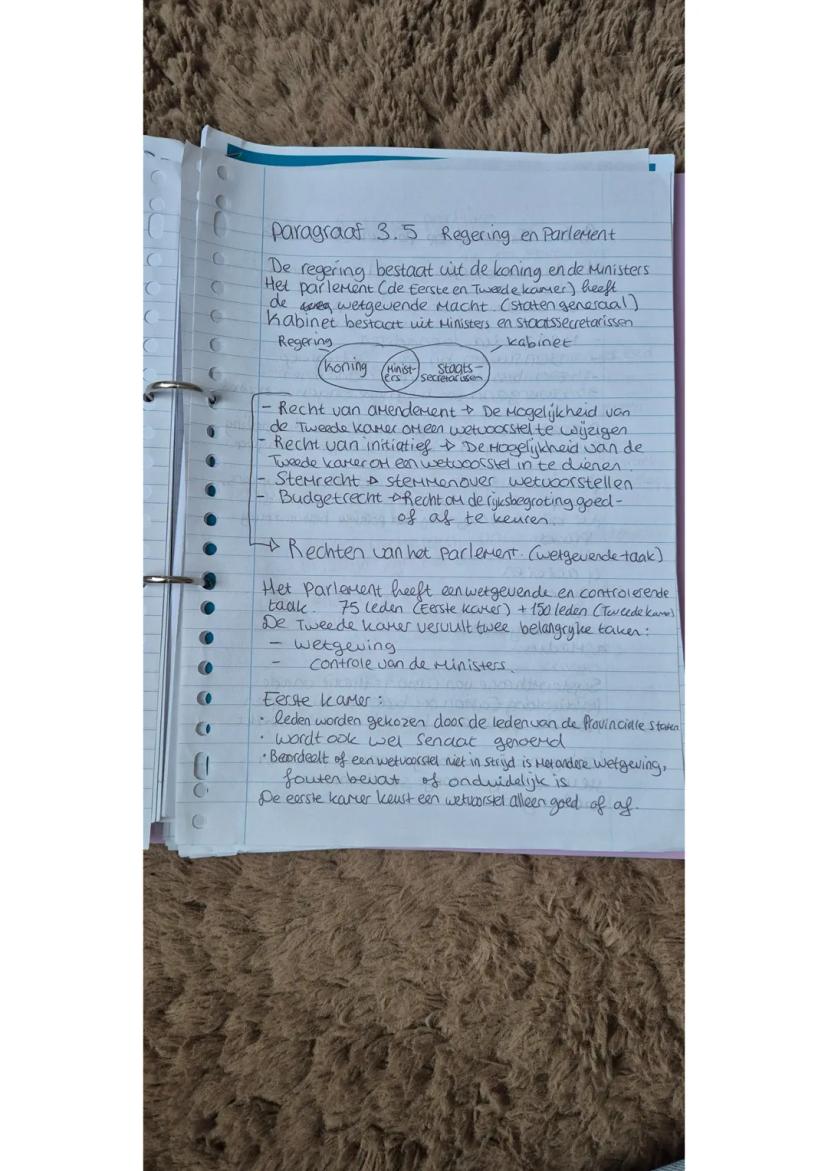 Paragraaf 3.5 Regering en Parlement
De regering bestaat uit de koning en de Ministers
Het parlement (de Eerste en Tweede kamer) heeft
de wetgevende Macht. (staten generaal)
Kabinet bestaat uit Ministers en staatssecretarissen
Regering kabinet
Koning Minist-ers Staats-secretarissen
- Recht van amendement → De Mogelijkheid van
de Tweede kamer om een wetvoorstel te wijzigen
- Recht van initiatief → De Mogelijkheid van de
Tweede kamer om een wetvoorstel in te dienen.
- Stemrecht → stemmen over wetvoorstellen
- Budgetrecht → Recht om de rijksbegroting goed-
of af te keuren.
→ Rechten van het parlement. (wetgevende taak)
Het Parlement heeft een wetgevende en controlerende
taak. 75 leden (Eerste kamer) + 150 leden (Tweede kamer)
De Tweede kamer vervult twee belangrijke taken:
- wetgeving
- controle van de Ministers.
Eerste kamer:
• leden worden gekozen door de leden van de Provinciale staten
• wordt ook wel Senaat genoemd
• Beoordeelt of een wetvoorstel niet in strijd is met andere wetgeving,
fouten bevat of onduidelijk is
De eerste kamer keurt een wetvoorstel alleen goed of af.